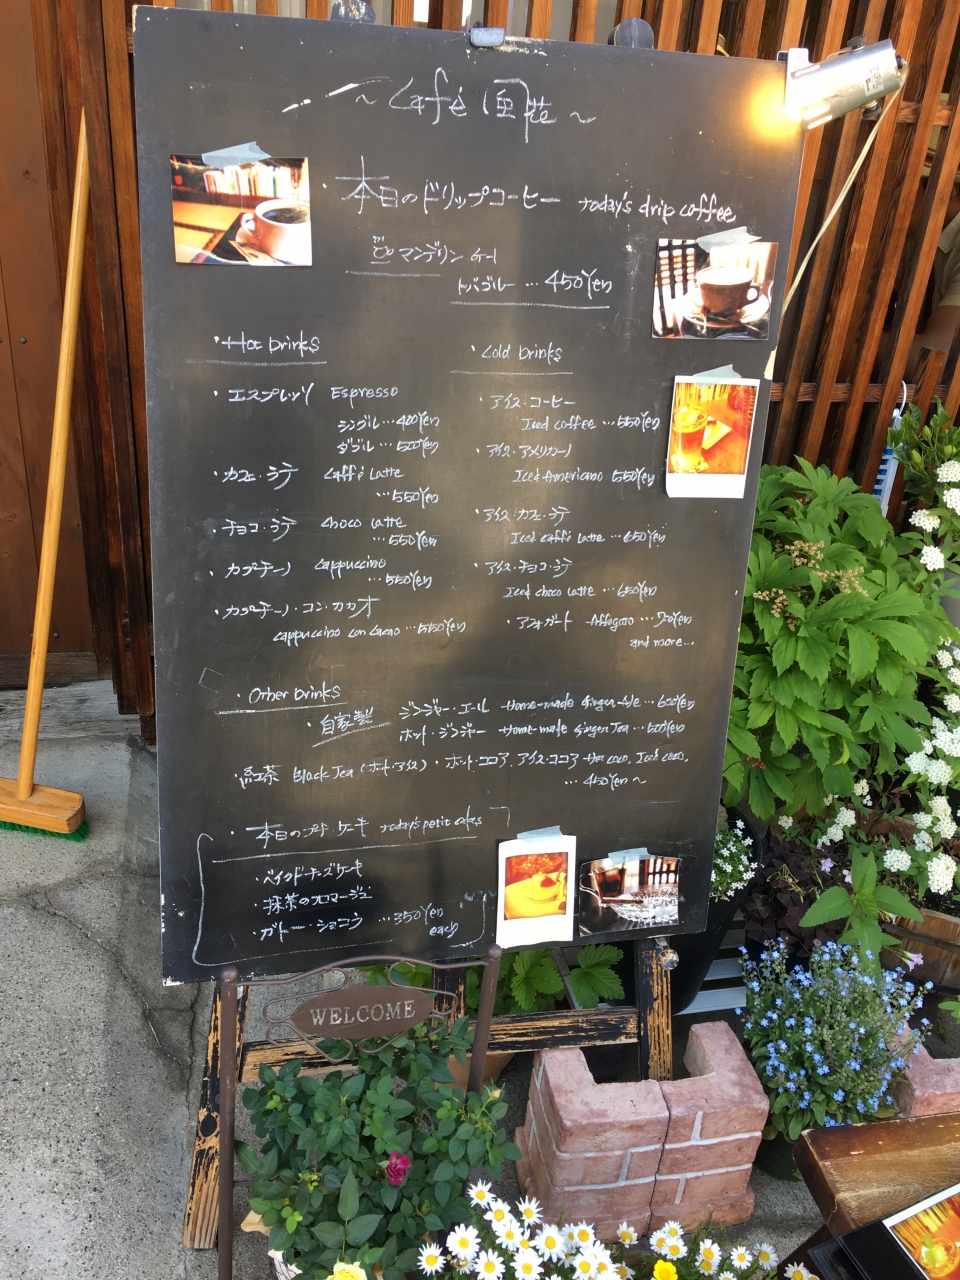 ~ Café 風花 ~
・本日のドリップコーヒー today's drip coffee
マンデリン G-1
トバブルー …450Yen
・Hot Drinks
・エスプレッソ Espresso
シングル…400Yen
ダブル…500Yen
・カフェ・ラテ Caffé Latte
…550Yen
・チョコ・ラテ choco latte
…550Yen
・カプチーノ cappuccino
…550Yen
・カプチーノ・コン・カカオ
cappuccino con cacao …550Yen
・Cold Drinks
・アイス・コーヒー
Iced coffee …550Yen
・アイス・アメリカーノ
Iced Americano 550Yen
・アイス・カフェ・ラテ
Iced caffé latte …650Yen
・アイス・チョコ・ラテ
Iced choco latte …650Yen
・アフォガート Affogato …
and more...
・Other Drinks
・自家製 ジンジャー・エール Home-made Ginger-Ale …600Yen
ホット・ジンジャー Home-made Ginger Tea …500Yen
・紅茶 Black Tea (ホット・アイス)・ホット・ココア、アイス・ココア Hot coco, Iced coco,
…450Yen〜
・本日のプチ・ケーキ today's petit cakes
・ベイクドチーズケーキ
・抹茶のフロマージュ
・ガトー・ショコラ …350Yen
each
WELCOME